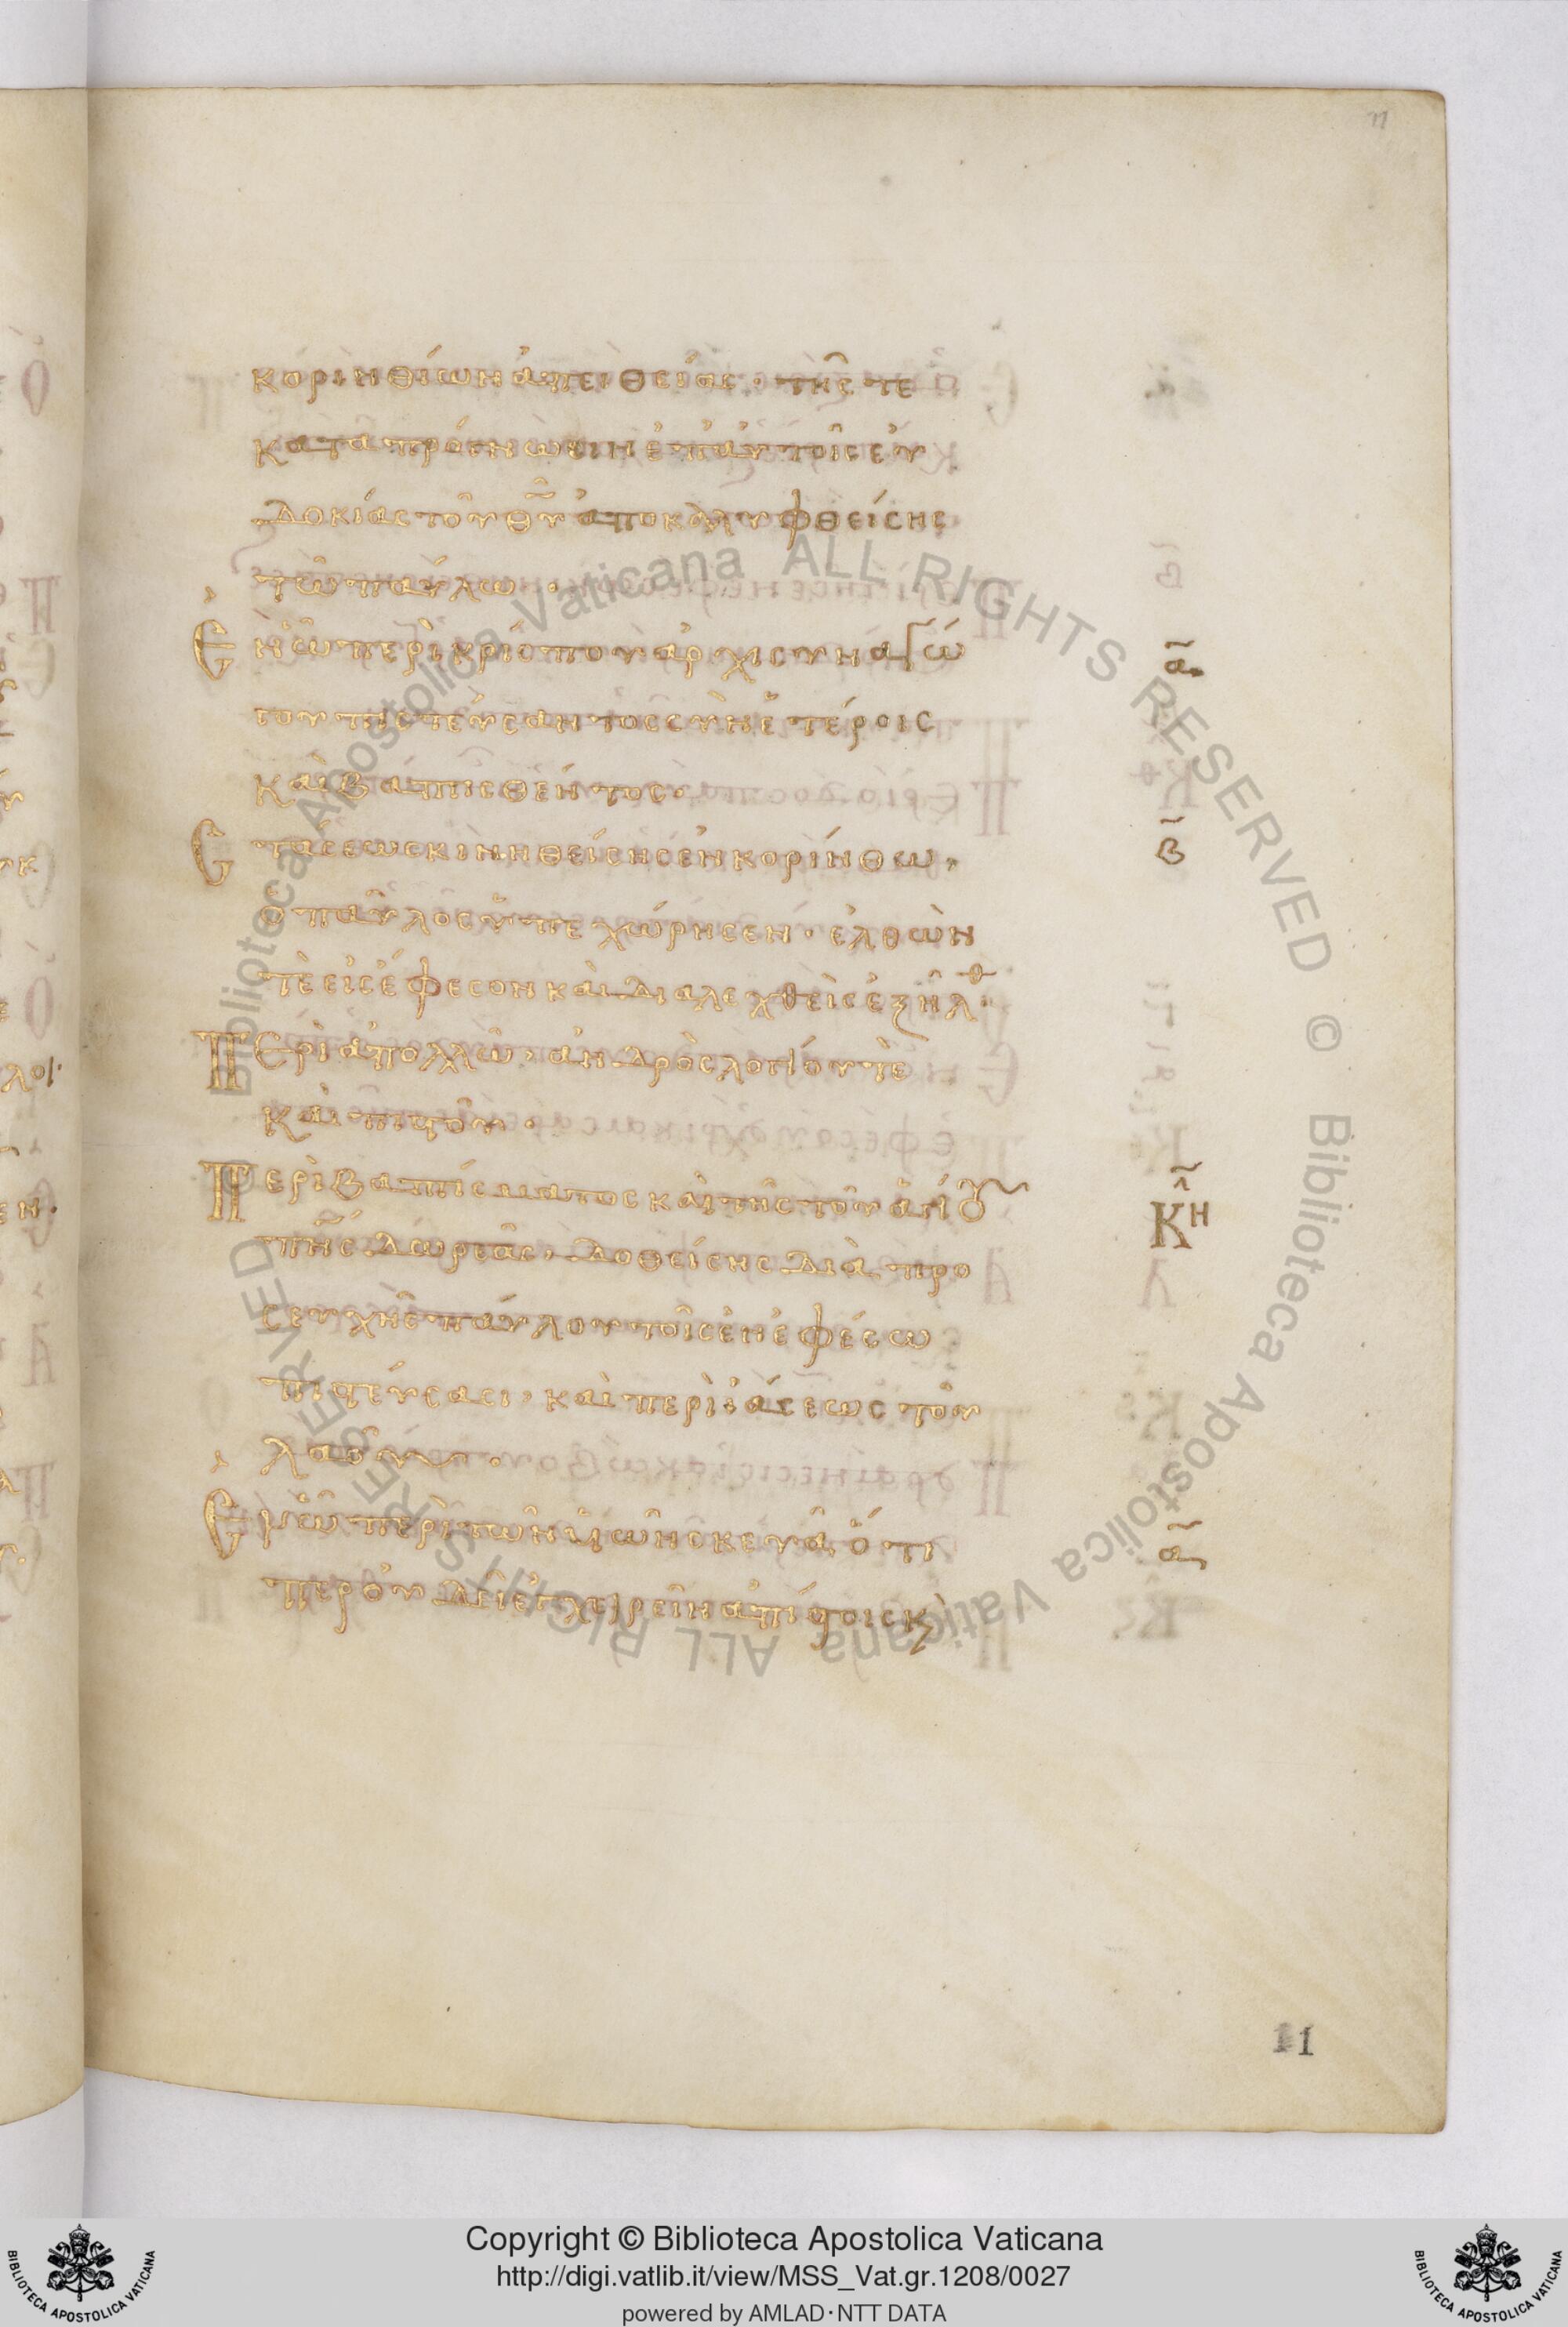 κορινθίων ἀπειθείας· τῆς τε
κατα πρόγνωσιν ἐπ αὐτοῖς εὐ
δοκίας τοῦ θ̅υ̅ ἀποκαλυφθείσης
τῶ παύλω·
Ἐν ὧ περὶ κρίσπου ἀρχισυναγώ
γου πιστεύσαντος σὺν ἑτέροις
καὶ βαπτισθέντος·
α̅
Στάσεως κινηθείσης ἐν κορίνθω,
ὁ παῦλος ὑπεχώρησεν· ἐλθὼν
τὲ εἰς ἔφεσον καὶ διαλεχθεὶς ἐξῆλθ·
β̅
Περὶ ἀπολλῶ, ἀνδρὸς λογίου τὲ
καὶ πιστοῦ·
Περὶ βαπτίσματος καὶ τῆς τοῦ ἁγίου
π̅ν̅ς̅ δωρεᾶς, δοθείσης διὰ προ
σευχῆς παύλου τοῖς ἐν ἐφέσω
πιστεύσασι, καὶ περὶ ἰάσεως τοῦ
λαοῦ·
ΚΗ
Ἐν ὧ περὶ τῶν υἱῶν σκευᾶ, ὅτι
περ οὐ δεῖ ἐγχειρεῖν ἀπίστοις κ
α̅
11
Biblioteca Apostolica Vaticana ALL RIGHTS RESERVED ©
Biblioteca Apostolica Vaticana ALL RIGHTS RESERVED
Copyright © Biblioteca Apostolica Vaticana
http://digi.vatlib.it/view/MSS_Vat.gr.1208/0027
powered by AMLAD·NTT DATA
BIBLIOTECA APOSTOLICA VATICANA
BIBLIOTECA APOSTOLICA VATICANA